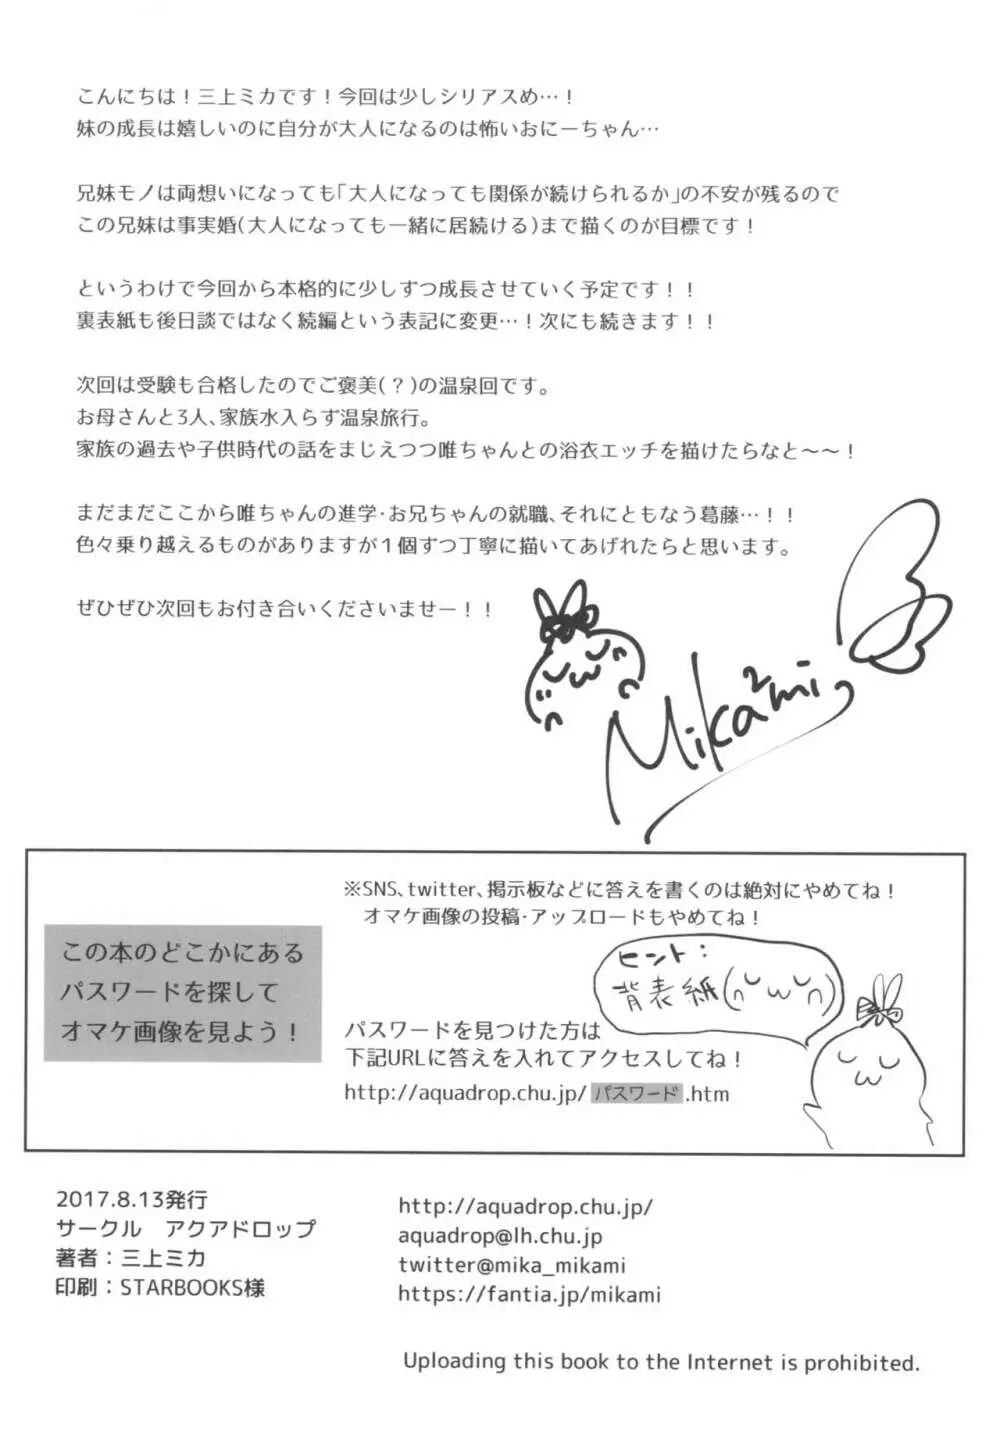 こんにちは！三上ミカです！今回は少しシリアスめ…！
妹の成長は嬉しいのに自分が大人になるのは怖いおにーちゃん…
兄妹モノは両想いになっても「大人になっても関係が続けられるか」の不安が残るので
この兄妹は事実婚(大人になっても一緒に居続ける)まで描くのが目標です！
というわけで今回から本格的に少しずつ成長させていく予定です！！
裏表紙も後日談ではなく続編という表記に変更…！次にも続きます！！
次回は受験も合格したのでご褒美(？)の温泉回です。
お母さんと3人、家族水入らず温泉旅行。
家族の過去や子供時代の話をまじえつつ唯ちゃんとの浴衣エッチを描けたらなと～～！
まだまだここから唯ちゃんの進学・お兄ちゃんの就職、それにともなう葛藤…！！
色々乗り越えるものがありますが１個ずつ丁寧に描いてあげれたらと思います。
ぜひぜひ次回もお付き合いくださいませー！！
Mika²mi
※SNS、twitter、掲示板などに答えを書くのは絶対にやめてね！
オマケ画像の投稿・アップロードもやめてね！
この本のどこかにある
パスワードを探して
オマケ画像を見よう！
ヒント：
背表紙
パスワードを見つけた方は
下記URLに答えを入れてアクセスしてね！
http://aquadrop.chu.jp/パスワード.htm
2017.8.13発行
サークル　アクアドロップ
著者：三上ミカ
印刷：STARBOOKS様
http://aquadrop.chu.jp/
aquadrop@lh.chu.jp
twitter@mika_mikami
https://fantia.jp/mikami
Uploading this book to the Internet is prohibited.